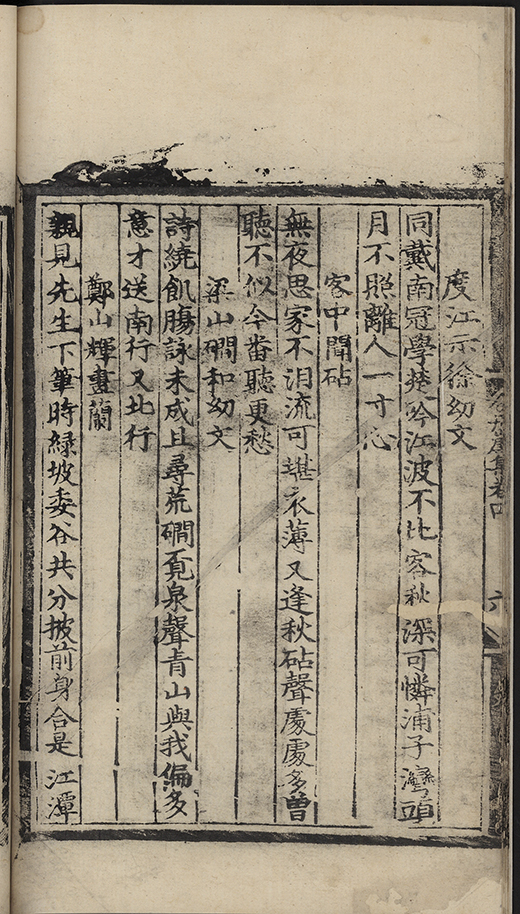 度江示徐幼文
同戴南冠學楚吟江波不比客秋深可憐浦子灣頭
月不照離人一寸心
客中聞砧
無夜思家不泪流可堪衣薄又逢秋砧聲處處多曾
聽不似今番聽更愁
梁山磵和幼文
詩繞飢腸詠未成且尋荒磵覔泉聲青山與我偏多
意才送南行又北行
鄭山輝畫蘭
親見先生下筆時緑坡委谷共分披前身合是江潭